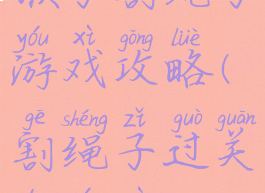 yóu xì gōng lüè
游戏攻略(
gē shéng zǐ guò guān
割绳子过关